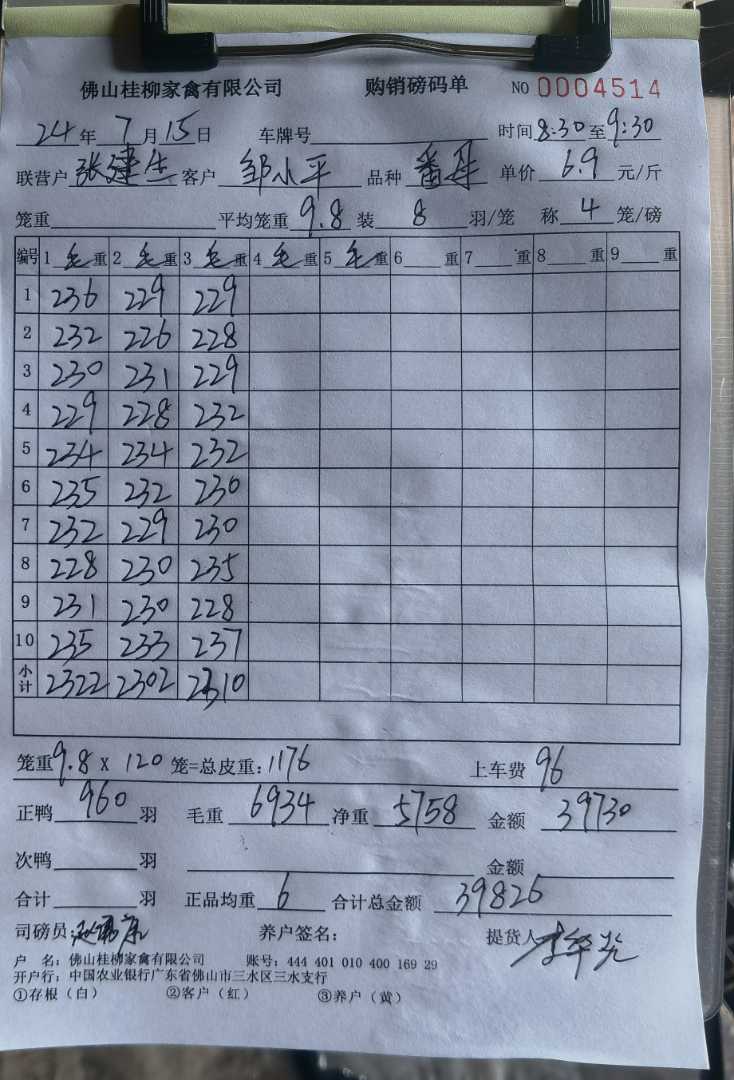 佛山桂柳家禽有限公司 购销磅码单 NO 0004514
24年 7月15日 车牌号 时间8:30至9:30
联营户 张建生 客户 邹小平 品种 番鸭 单价 6.9 元/斤
笼重 平均笼重 9.8 装 8 羽/笼 称 4 笼/磅
编号 1 毛 重 2 毛 重 3 毛 重 4 毛 重 5 毛 重 6 重 7 重 8 重 9 重
1 236 229 229
2 232 226 228
3 230 231 229
4 229 228 232
5 234 234 232
6 235 232 230
7 232 229 230
8 228 230 235
9 231 230 228
10 235 233 237
小计 2322 2302 2310
笼重9.8 X 120 笼=总皮重:1176 上车费 96
正鸭 960 羽 毛重 6934 净重 5758 金额 39730
次鸭 羽 金额
合计 羽 正品均重 6 合计总金额 39826
司磅员: 养户签名: 提货人
户 名: 佛山桂柳家禽有限公司 账号: 444 401 010 400 169 29
开户行: 中国农业银行广东省佛山市三水区三水支行
①存根（白） ②客户（红） ③养户（黄）